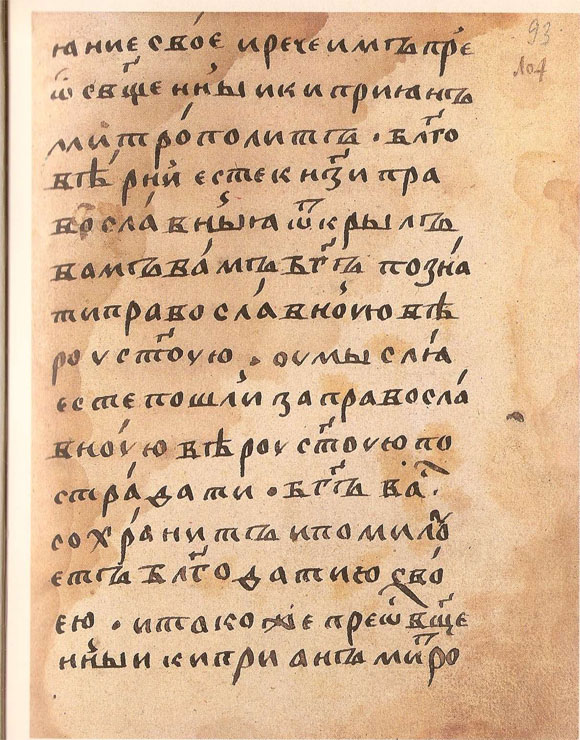 93
ꙗние свое и рече имъ пре
ѡсвⷳщенныи киприꙗнъ
митрополитъ · блⷢ҇го
вѣрнїи есте кнⷥ҇зи пра
вославныꙗ ѿкрылъ
вамъ вамъ бг҃ъ позна
ти православною вѣ
роу ст҃оую · оумыслїа
есте пошли за правосла
вноую вѣроу ст҃оую по
страдати · бг҃ъ ва
сохранитъ и помилѹ
етъ блг҃одатию сво
ею · и тако же преѡсвщ҃е
нныи киприанъ митро